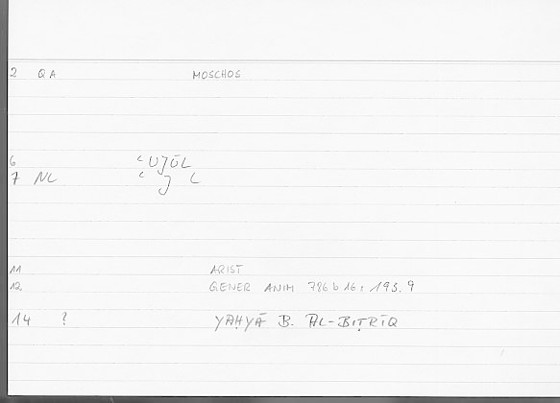 2 QA MOSCHOS
6 ʿUǦŪL
7 NL ʿ ǧ L
11 ARIST
12 GENER ANIM 786 b 16; 193.9
14 ? YAḤYĀ B. AL-BIṬRĪQ